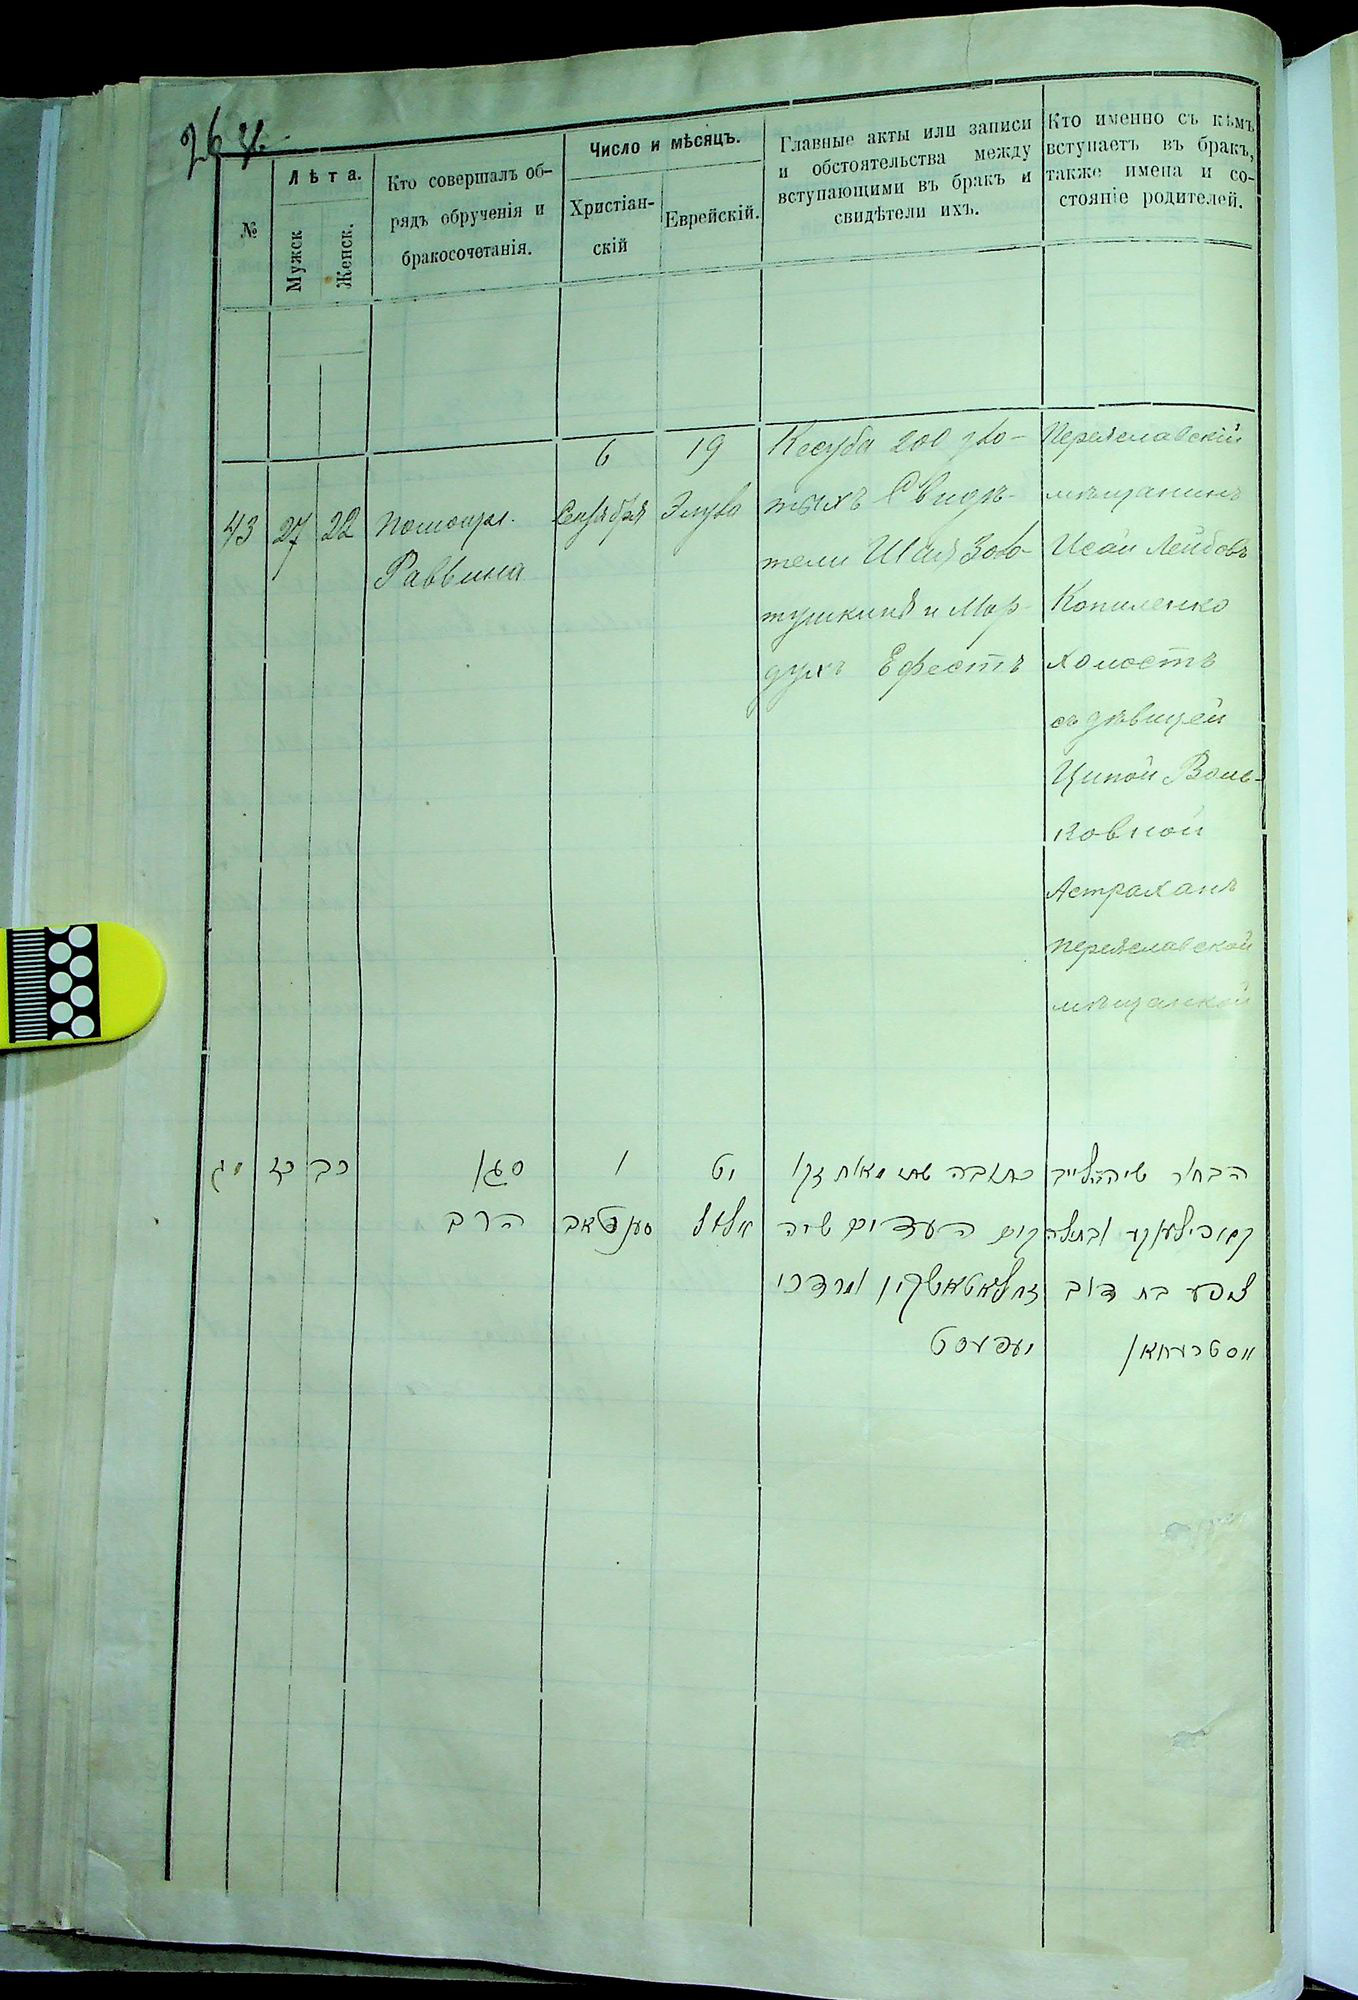 №
Лѣта.
Мужск
Женск.
Кто совершалъ об-
рядъ обрученія и
бракосочетанія.
Число и мѣсяцъ.
Христіан-
скій
Еврейскій.
Главные акты или записи
и обстоятельства между
вступающими въ бракъ и
свидѣтели ихъ.
Кто именно съ кѣмъ
вступаетъ въ бракъ,
также имена и со-
стояніе родителей.
43
27
22
Раввина
6
Сентября
19
Элула
Кесуба 200 зло-
тыхъ Свидѣ-
тели Шая Золо-
тушкинъ и Мор-
духъ Ефестъ
Переяславскій
мѣщанинъ
Лейбовъ
Копиленко
холостъ
съ дѣвицей
Ципой Воль-
ковной
Астраханъ
Переяславской
мѣщанкой
כז
כב
סגן
הרב
ו
סענטאב
יט
אלול
כתובה שתי מאות זקו
העדים שיה
זאלאטאטשקין ומרדכי
יעפעסט
הבחור
קאפילענקע
ציפע בת דוב
אסטרעחאן